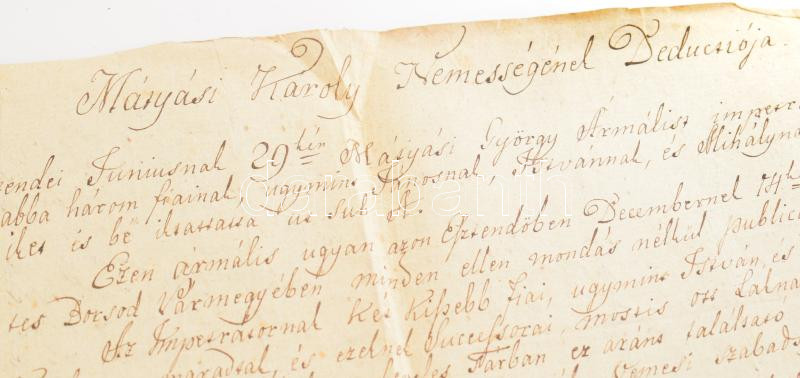 Mátyási Károly Nemességének Deductiója.
endei Juniusnak 29kén Mátyási György Ármálist impetr
abba három fiainak, ugymint Jánosnak, Istvánnak, és Mihályna
iket is bé iktattatta
Ezen armális ugyan azon Esztendőben Decembernek 14k
tes Borsod Vármegyében minden ellen mondás nélkül public
Az Impetrátornak két kissebb fiai, ugymint István, és
maradtak, és ezeknek Successorai, mostis ott lakna
Tárban ez aránt található
Nemesi szabads
darabanth